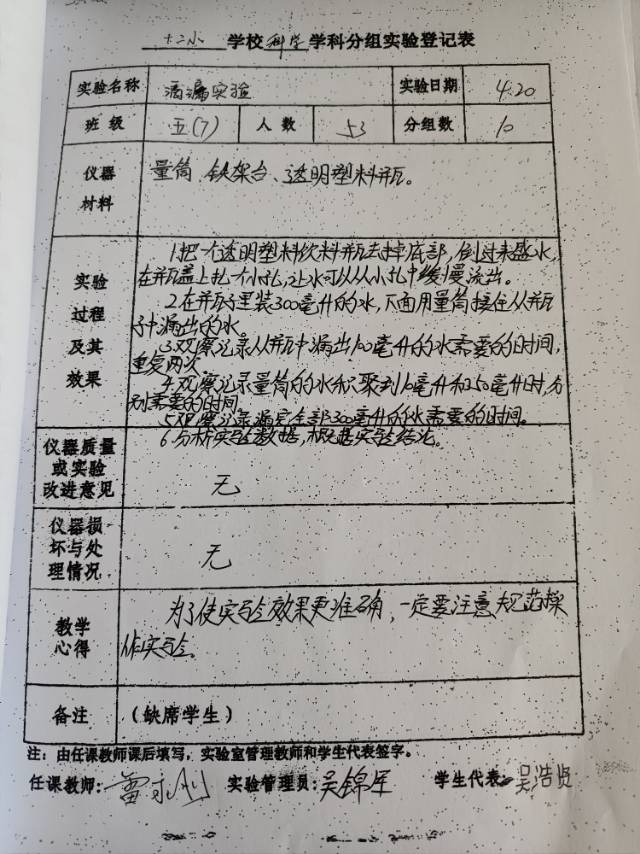 十二小 学校 科学 学科分组实验登记表
实验名称 滴漏实验 实验日期 4.20
班级 五(7) 人数 53 分组数 10
仪器材料 量筒、铁架台、透明塑料瓶。
实验过程及其效果
1.把一个透明塑料饮料瓶去掉底部,倒过来盛水,
在瓶盖上扎个小孔,让水可以从小孔中缓慢流出。
2.在瓶子里装300毫升的水,下面用量筒接住从瓶
子中漏出的水。
3.观察记录从瓶中漏出100毫升的水需要的时间,
重复两次
4.观察记录量筒的水积聚到10毫升和250毫升时,分
别需要的时间
5.观察记录漏完全部300毫升的水需要的时间。
6.分析实验数据,根据实验结论。
仪器质量或实验改进意见 无
仪器损坏与处理情况 无
教学心得
为了使实验效果更准确,一定要注意规范操
作实验。
备注 (缺席学生)
注:由任课教师课后填写,实验室管理教师和学生代表签字。
任课教师: 雷 实验管理员: 吴锦军 学生代表: 吴浩贤